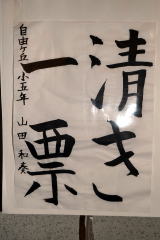 清き
一票
自由ヶ丘小五年 山田和奏